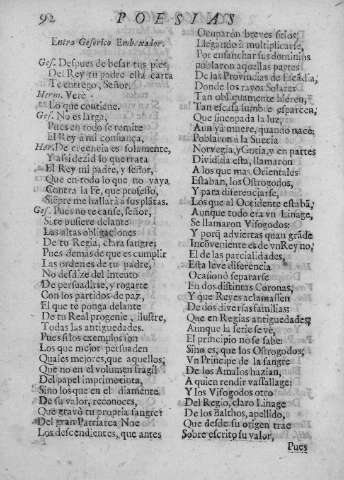 92 POESIAS
Entra Geserico Embaxador.
Ges. Despues de besar tus pies,
Del Rey tu padre esta carta
Te entrego, Señor.
Herm. Verè
Lo que contiene.
Ges. No es larga,
Pues en todo se remite
El Rey à mi confiança,
Her. De creencia es solamente,
Y assi dezid lo que trata
El Rey mi padre, y señor,
Que en todo lo que no vaya
Contra la Fè, que professo,
Siẽpre me hallarà à sus plãtas.
Ges. Pues no te canse, señor,
Si te pusiere delante
Las altas obligaciones
De tu Regia, clara sangre;
Pues demàs de que es cumplir
Las ordenes de tu padre,
No desdize del intento
De persuadirte, y rogarte
Con los partidos de paz,
El que te ponga delante
De tu Real progenie, ilustre,
Todas las antiguedades.
Pues si los exemplos son
Los que mejor persuaden
Quales mejores, que aquellos,
Que no en el volumen fragil
Del papel imprimiò tinta,
Sino los que en el diamante
De su valor, reconoces,
Que gravò tu propria sangre?
Del gran Patriarca Noe
Los descendientes, que antes
Ocuparon breves suelos,
Llegando à multiplicarse,
Por ensanchar sus dominios
poblaron aquellas partes
De las Provincias de Escãdia,
Donde los rayos Solares
Tan obliquamente hieren,
Tan escasa lumbre esparcen,
Que sincopada la luz,
Aun và muere, quando nace;
Poblaron à la Suecia
Norvegia, y Gotia, y en partes
Dividida esta, llamaron
A los que mas Orientales
Estaban, los Ostrogodos,
Y para diferenciarse,
Los que al Occidente estabã,
Aunque todo era vn Linage,
Se llamaron Visogodos:
Y però advierras quan grãde
Incõveniente es de vn Rey no,
El de las parcialidades,
Esta leve diferencia
Ocasionò separarse
En dos distintas Coronas,
Y que Reyes aclamassen
De dos diversas familias:
Que en Regias antiguedades,
Aunque la serie se vè,
El principio no se sabe:
Sino es, que los Ostrogodos,
Vn Principe de la sangre
De los Amalos hazian,
A quien rendir vassallage:
Y los Visogodos otro
Del Regio, claro Linage
De los Balthos, apellido,
Que desde su origen trae
Sobre escrito su valor,
Pues